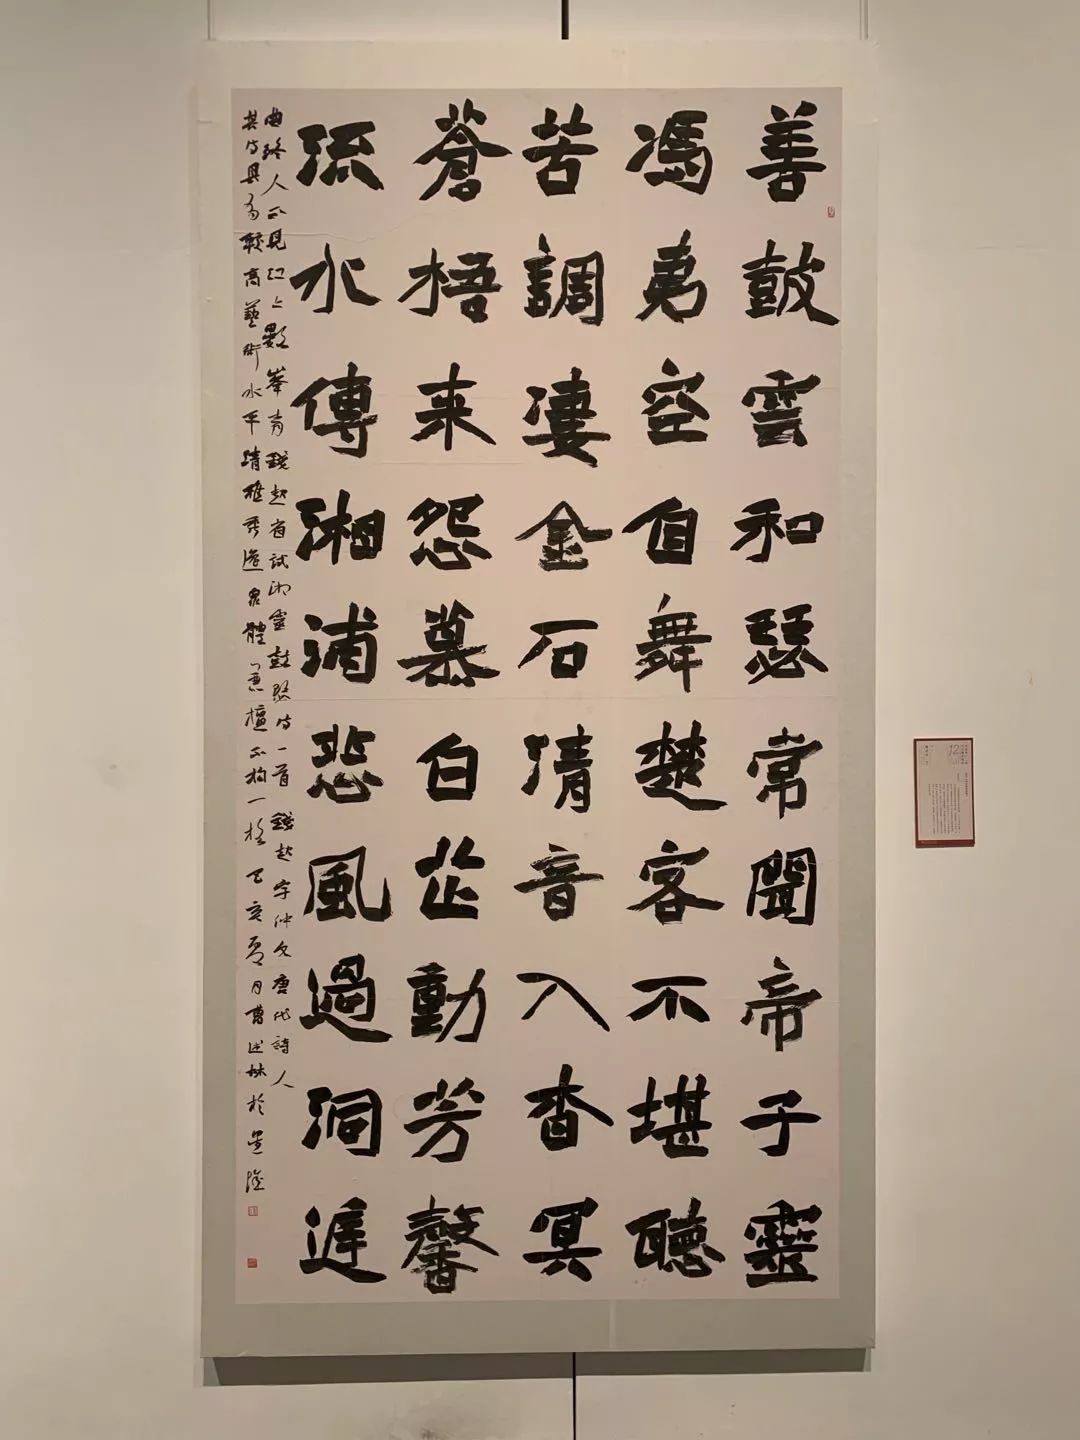 善鼓雲和瑟常聞帝子靈
馮夷空自舞楚客不堪聽
苦調淒金石清音入杳冥
蒼梧来怨慕白芷動芳馨
流水傳湘浦悲風過洞庭
曲終人不見江上數峯青錢起省試湘靈鼓瑟詩一首錢起字仲文唐代詩人
其詩具有較高藝術水平清雅秀逸眾體兼擅不拘一格己亥夏月曹林於